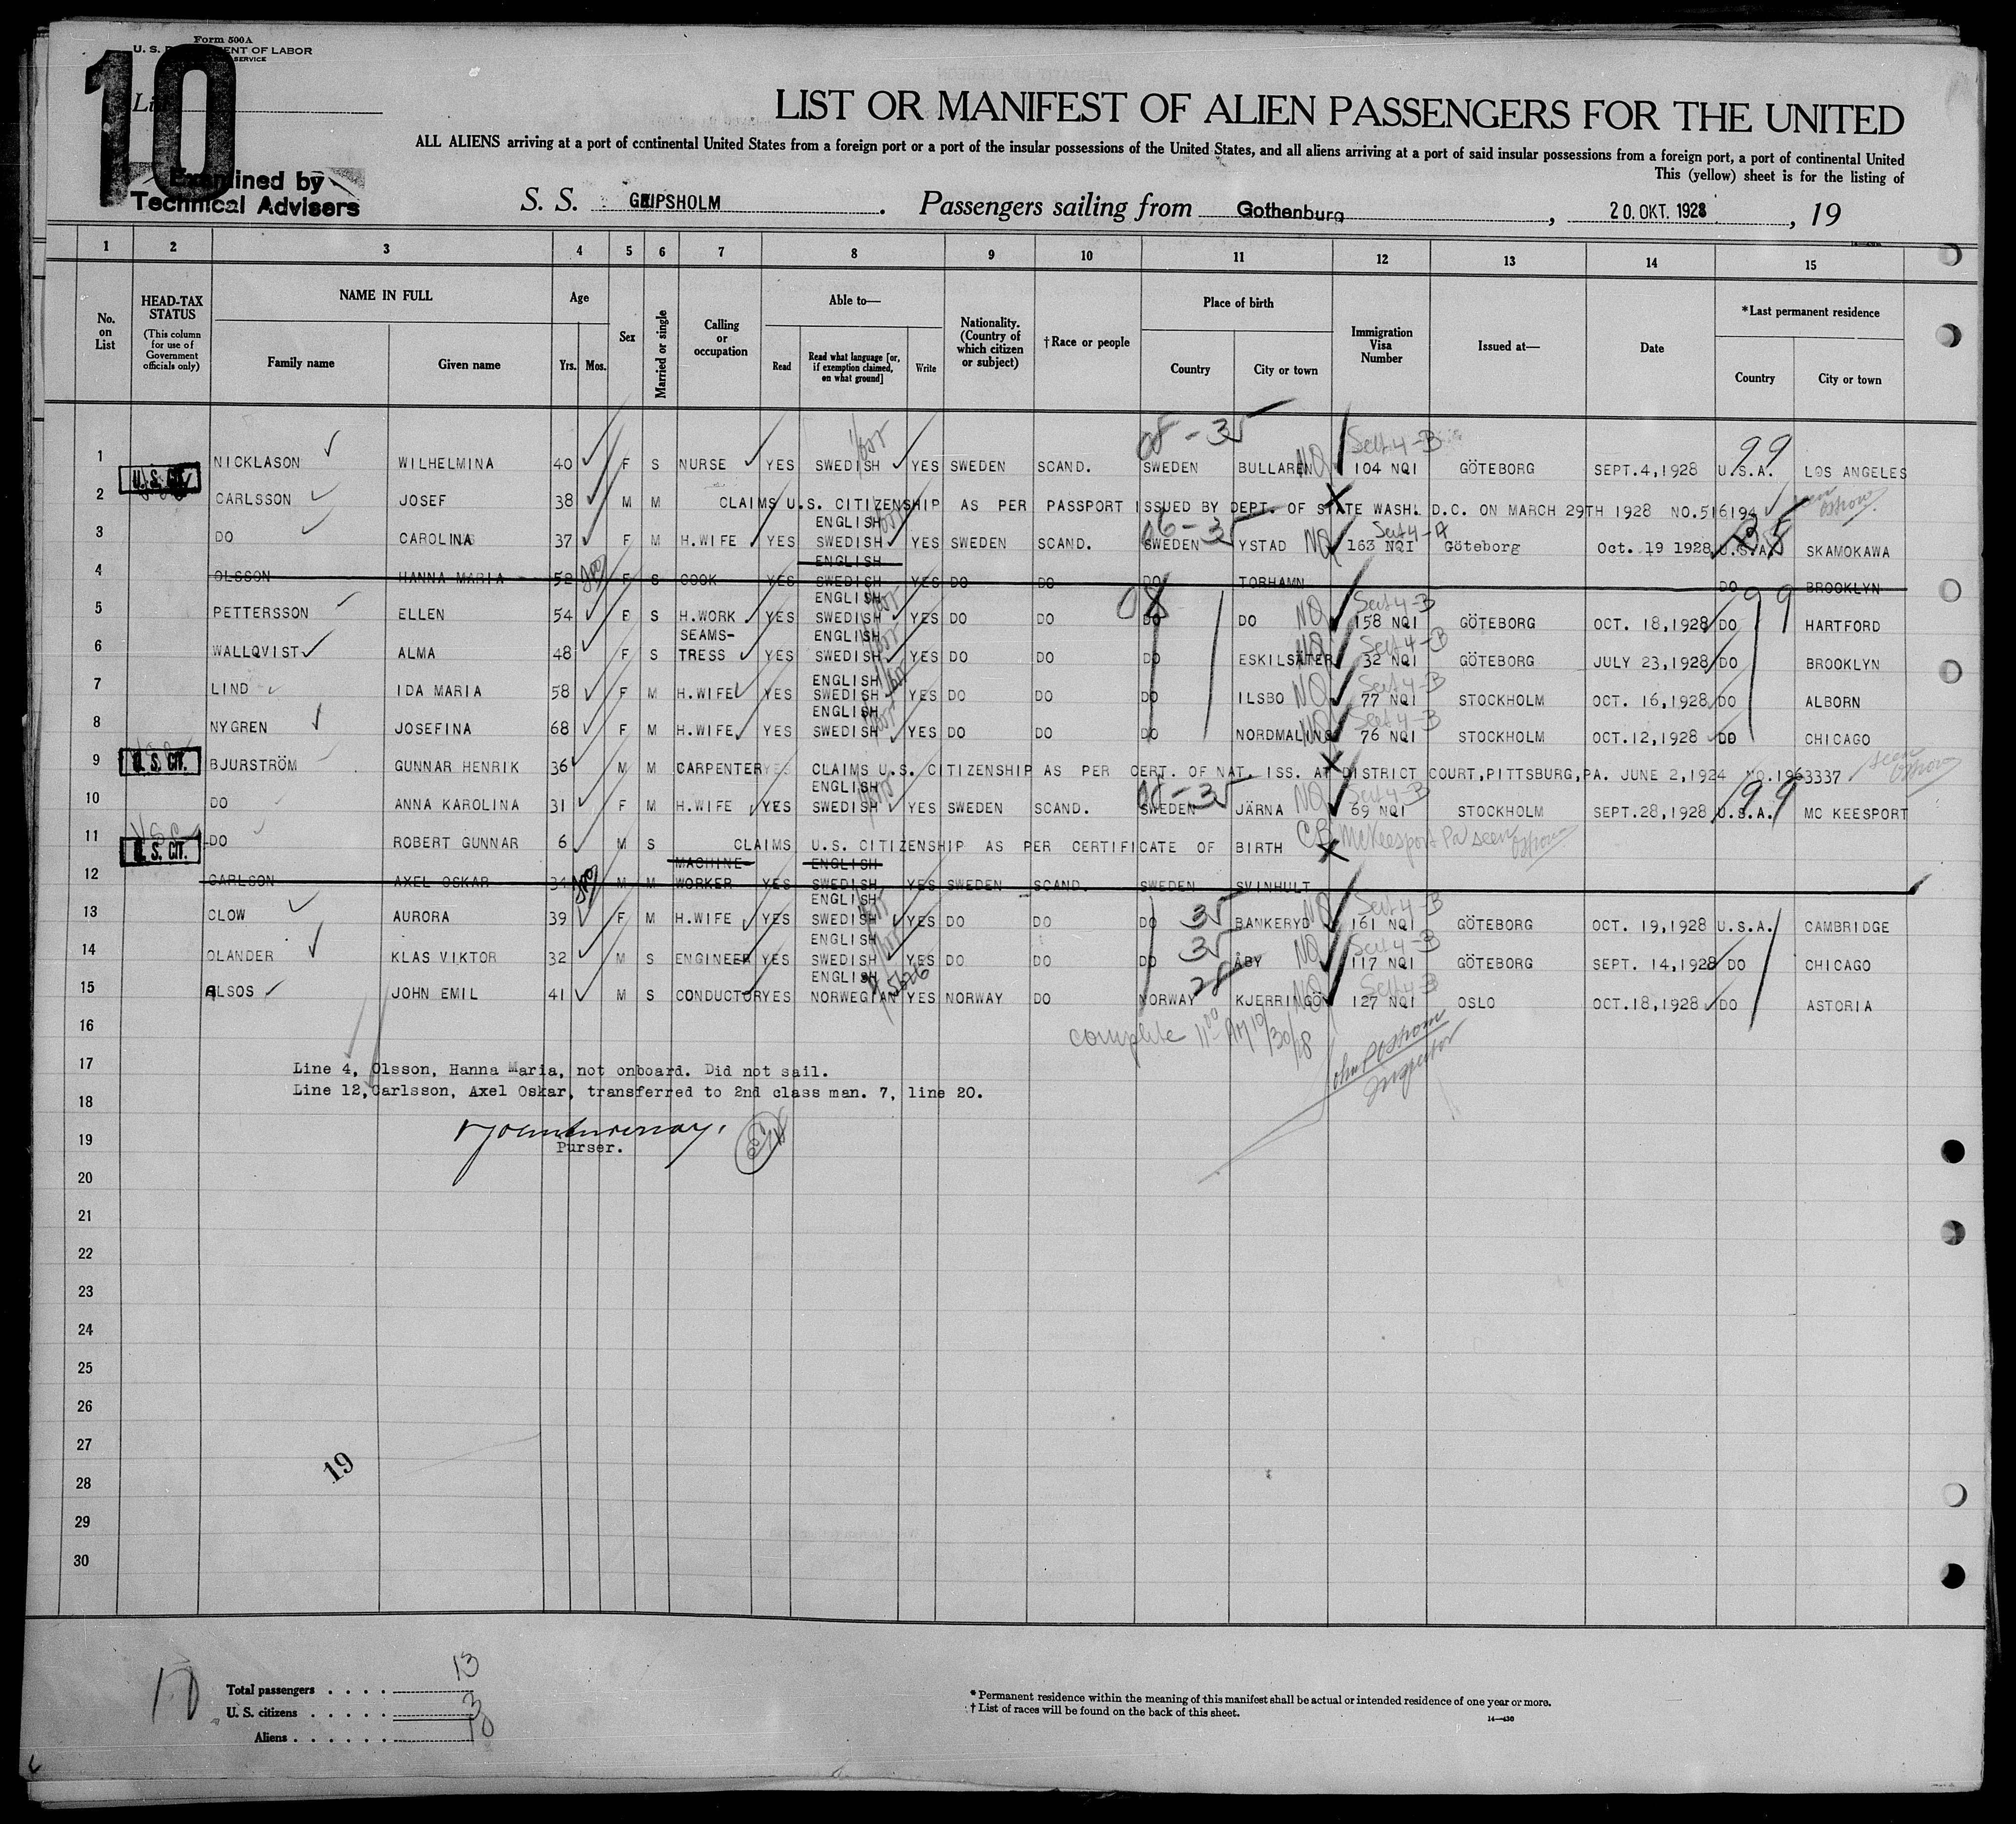 Form 500A
U. S. DEPARTMENT OF LABOR
SERVICE
10
List
Examined by
Technical Advisers
LIST OR MANIFEST OF ALIEN PASSENGERS FOR THE UNITED
ALL ALIENS arriving at a port of continental United States from a foreign port or a port of the insular possessions of the United States, and all aliens arriving at a port of said insular possessions from a foreign port, a port of continental United
This (yellow) sheet is for the listing of
S. S. GRIPSHOLM. Passengers sailing from Gothenburg, 20. OKT. 1928, 19
1 2 3 4 5 6 7 8 9 10 11 12 13 14 15
No. on List
HEAD-TAX STATUS (This column for use of Government officials only)
NAME IN FULL Family name Given name
Age Yrs. Mos.
Sex
Married or single
Calling or occupation
Able to— Read Read what language [or, if exemption claimed, on what ground] Write
Nationality. (Country of which citizen or subject)
†Race or people
Place of birth Country City or town
Immigration Visa Number
Issued at—
Date
*Last permanent residence Country City or town
08-35 Sect 4-B 99
1 NICKLASON WILHELMINA 40 F S NURSE YES SWEDISH YES SWEDEN SCAND. SWEDEN BULLAREN NQ 104 NQI GÖTEBORG SEPT.4,1928 U.S.A. LOS ANGELES
U.S. CIT.
2 CARLSSON JOSEF 38 M M CLAIMS U.S. CITIZENSHIP AS PER PASSPORT ISSUED BY DEPT. OF STATE WASH. D.C. ON MARCH 29TH 1928 NO.516194 seen
ENGLISH 06-35 Sect 4-A
3 DO CAROLINA 37 F M H.WIFE YES SWEDISH YES SWEDEN SCAND. SWEDEN YSTAD NQ 163 NQI Göteborg Oct. 19 1928 U.S.A. SKAMOKAWA
ENGLISH
4 OLSSON HANNA MARIA 52 F S COOK YES SWEDISH YES DO DO DO TORHAMN DO BROOKLYN
ENGLISH 08 Sect 4-B 99
5 PETTERSSON ELLEN 54 F S H.WORK YES SWEDISH YES DO DO DO DO NQ 158 NQI GÖTEBORG OCT. 18,1928 DO HARTFORD
SEAMS- ENGLISH Sect 4-B
6 WALLQVIST ALMA 48 F S TRESS YES SWEDISH YES DO DO DO ESKILSÄTER NQ 32 NQI GÖTEBORG JULY 23,1928 DO BROOKLYN
ENGLISH Sect 4-B
7 LIND IDA MARIA 58 F M H.WIFE YES SWEDISH YES DO DO DO ILSBO NQ 77 NQI STOCKHOLM OCT. 16,1928 DO ALBORN
ENGLISH Sect 4-B
8 NYGREN JOSEFINA 68 F M H.WIFE YES SWEDISH YES DO DO DO NORDMALING NQ 76 NQI STOCKHOLM OCT.12,1928 DO CHICAGO
U.S. CIT.
9 BJURSTRÖM GUNNAR HENRIK 36 M M CARPENTER YES CLAIMS U.S. CITIZENSHIP AS PER CERT. OF NAT. ISS. AT DISTRICT COURT,PITTSBURG,PA. JUNE 2,1924 NO.1963337 seen
ENGLISH 08-35 Sect 4-B 99
10 DO ANNA KAROLINA 31 F M H.WIFE YES SWEDISH YES SWEDEN SCAND. SWEDEN JÄRNA NQ 69 NQI STOCKHOLM SEPT.28,1928 U.S.A. MC KEESPORT
U.S. CIT.
11 DO ROBERT GUNNAR 6 M S CLAIMS U.S. CITIZENSHIP AS PER CERTIFICATE OF BIRTH CB McKeesport Pa seen
MACHINE- ENGLISH
12 CARLSON AXEL OSKAR 34 M M WORKER YES SWEDISH YES SWEDEN SCAND. SWEDEN SVINHULT
ENGLISH Sect 4-B
13 CLOW AURORA 39 F M H.WIFE YES SWEDISH YES DO DO DO 35 BANKERYD NQ 161 NQI GÖTEBORG OCT. 19,1928 U.S.A. CAMBRIDGE
ENGLISH Sect 4-B
14 OLANDER KLAS VIKTOR 32 M S ENGINEER YES SWEDISH YES DO DO DO 35 ÅBY NQ 117 NQI GÖTEBORG SEPT. 14,1928 DO CHICAGO
ENGLISH 28 Sect 4-B
15 ALSOS JOHN EMIL 41 M S CONDUCTOR YES NORWEGIAN YES NORWAY DO NORWAY KJERRINGÖY NQ 127 NQI OSLO OCT.18,1928 DO ASTORIA
16
complete 11 00 AM 10/30/28
Inspector
17 Line 4, Olsson, Hanna Maria, not onboard. Did not sail.
Line 12, Carlsson, Axel Oskar, transferred to 2nd class man. 7, line 20.
18
19
Purser.
20
21
22
23
24
25
26
27
19
28
29
30
10
Total passengers . . . . 13
U. S. citizens . . . . . 3
Aliens . . . . . . 10
*Permanent residence within the meaning of this manifest shall be actual or intended residence of one year or more.
†List of races will be found on the back of this sheet.
14—430